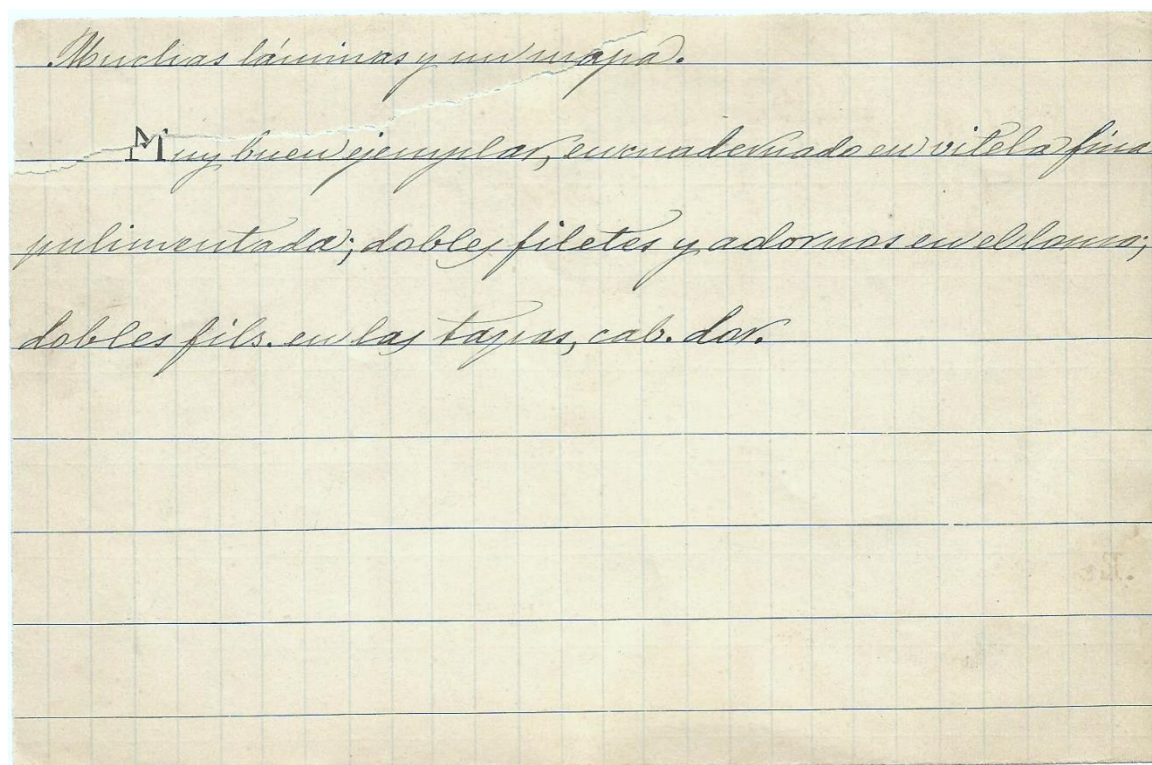 Muchas láminas y un mapa.
Muy buen ejemplar, encuadernado en vitela fina
pulimentada; dobles filetes y adornos en el lomo;
dobles fils. en las tapas, cab. dor.